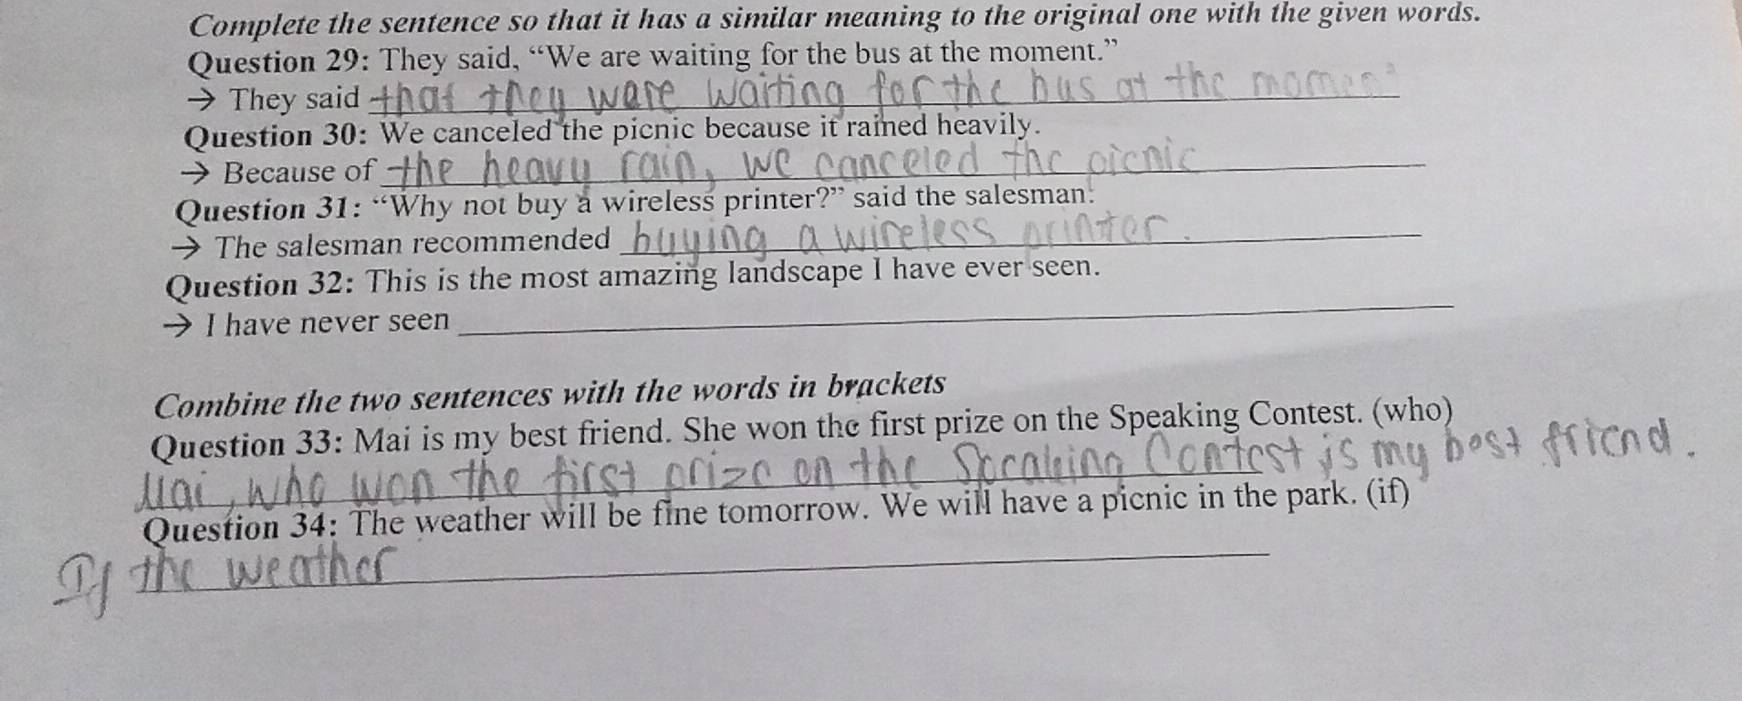 Complete the sentence so that it has a similar meaning to the original one with the given words.
Question 29: They said, “We are waiting for the bus at the moment.”
→ They said that they ware waiting for the bus at the moment
Question 30: We canceled the picnic because it rained heavily.
→ Because of the heavy rain, we canceled the picnic
Question 31: “Why not buy a wireless printer?” said the salesman.
→ The salesman recommended buying a wireless printer.
Question 32: This is the most amazing landscape I have ever seen.
→ I have never seen
Combine the two sentences with the words in brackets
Question 33: Mai is my best friend. She won the first prize on the Speaking Contest. (who)
Mai, who won the first prize on the Speaking Contest is my best friend.
Question 34: The weather will be fine tomorrow. We will have a picnic in the park. (if)
If the weather